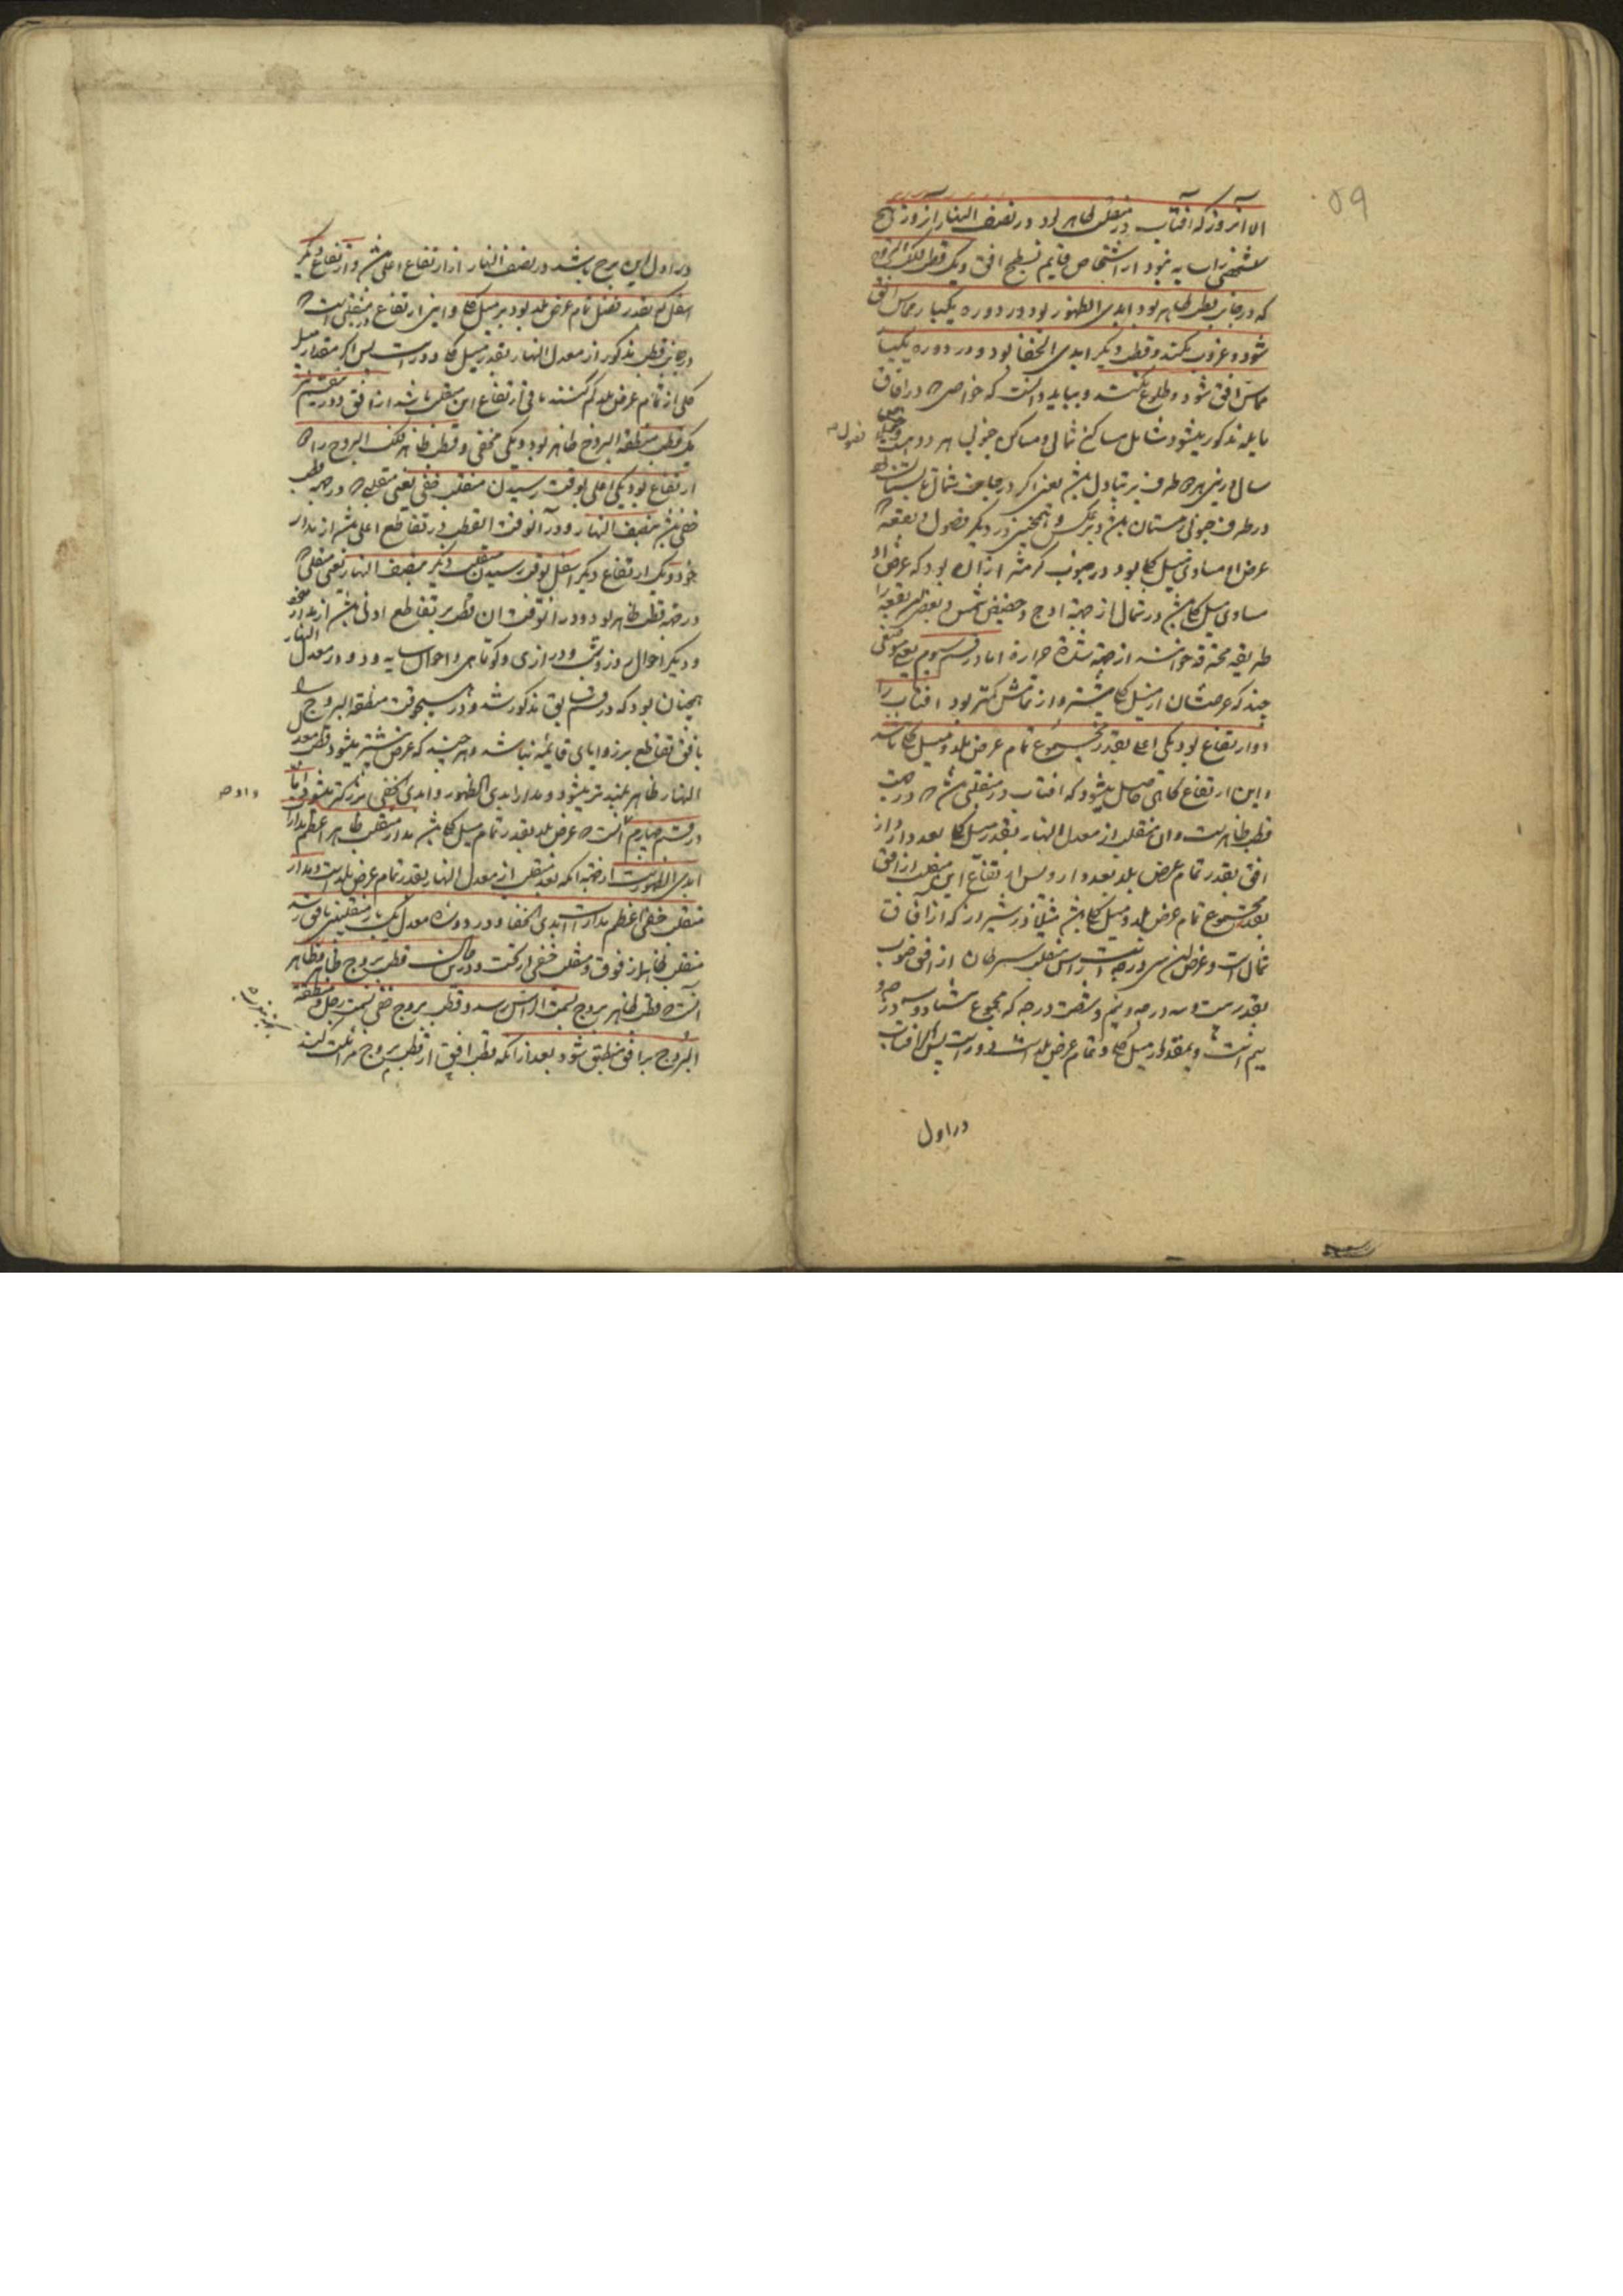 ۵۹
الا آنروز که افتاب در منقلب ظاهر بود در نصف النهار آنروز هیچ
شخصی را سایه نبود از اشخاص قایم بسطح افق و یک قطب فلک البروج
که در جانب قطب ظاهر بود ابدی الظهور بود و در دوره یکبار مماس افق
شود و غروب نکند و قطب دیگر ابدی الخفا بود و در دوره یکبار
مماس افق شود و طلوع نکند و بباید دانست که خواصی که در افاق
مایله مذکور میشود شامل مساکن شمالی و مساکن جنوبی هر دو هست
فصول
سال در این هر دو طرف بر تبادل باشد یعنی اگر در جانب شمال تابستان بود
در طرف جنوبی زمستان باشد و بر عکس و همچنین در دیگر فصول و بقعه که
عرض او مساوی میل کلی بود در جنوب گرمتر از آن بود که عرض او
مساوی میل کلی باشد در شمال از جهة اوج و حضیض شمس و بعضی این بقعه را
طریقه محترقه خوانند از جهة شدة حرارة اما در قسم سیوم یعنی مواضعی
چند که عرضشان از میل کلی بیشتر و از تمامش کمتر بود افتاب را
دو ارتفاع بود یکی اعلی بقدر مجموع تمام عرض بلد و میل کلی باشد
و این ارتفاع گاهی حاصل میشود که افتاب در منقلبی باشد که در جهت
قطب ظاهرست و ان منقلب از معدل النهار بقدر میل کلی بعد دارد و از
افق بقدر تمام عرض بلد بعد دارد پس ارتفاع این منقلب از افق
بقدر مجموع تمام عرض بلد و میل کلی باشد مثلا در شیراز که از افاق
شمالست و عرض این سی درجه است راس منقلب سرطان از افق جنوب
بقدر بیست و سه درجه و نیم و شصت درجه که مجموع هشتاد و سه درجه و
نیم است و بمقدار میل کلی و تمام عرض بلد است دورست پس اگر افتاب
در اول
در اول این برج باشد در نصف النهار از ارتفاع اعلی باشد و ارتفاع دیگر
اسفل که بقدر فضل تمام عرض بلد بود بر میل کلی و این ارتفاع در منقلبی است که
در جانب قطب مذکور از معدل النهار بقدر میل کلی دورست پس اگر مقدار میل
کلی از تمام عرض بلد کم کنند باقی ارتفاع این منقلب باشد از افق
یک قطب منطقة البروج ظاهر بود و یکی مخفی و قطب ظاهر فلک البروج را دو
ارتفاع بود یکی اعلی بوقت رسیدن منقلب خفی یعنی منقلبی که در جهة قطب
خفی باشد بنصف النهار و در آنوقت القطب در تقاطع اعلی باشد از مدار
خود و یک ارتفاع دیگر اسفل بوقت رسیدن منقلب دیگر بنصف النهار یعنی منقلبی که
در جهة قطب ظاهر بود و در آنوقت ان قطب بر تقاطع ادنی باشد از مدار خود
و دیگر احوال روز و شب و درازی و کوتاهی و احوال سایه و دور معدل النهار
همچنان بود که در قسم سابق مذکور شد و در هیچ وقت منطقة البروج را
با افق تقاطع بر زوایای قایمه نباشد و هر چند که عرض بیشتر میشود قطب معدل
النهار ظاهر بلندتر میشود و مدار ابدی الظهور و ابدی الخفی بزرگتر میشود و اما
در قسم چهارم انست که عرض بلد بقدر تمام میل کلی باشد مدار منقلب ظاهر اعظم مدارات
ابدی الظهورست از جهة انکه بعد منقلب از معدل النهار بقدر تمام عرض بلدست و مدار
منقلب خفی اعظم مدارات ابدی الخفا و در دوره معدل یک بار منقلبین بافق رسد
منقلب ظاهر از فوق و منقلب خفی از تحت و در آن قطب بروج ظاهر
انست که قطب ظاهر بروج بسمت الراس رسد و قطب بروج خفی بسمت رجل و منطقة
البروج بر افق منطبق شود بعد از انکه قطب افق از قطب بروج مراجعت کند